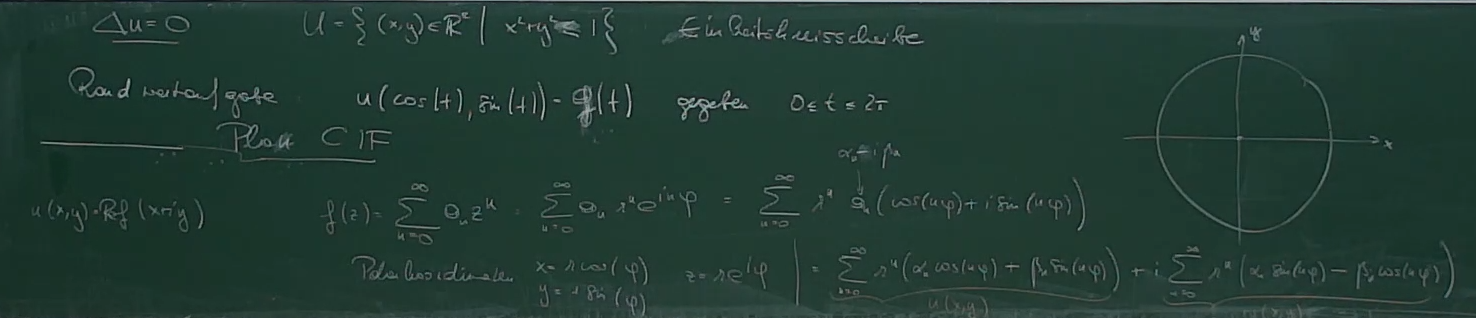 Δu = 0 U = { (x,y) ∈ ℝ² | x²+y² ≤ 1 } Einheitskreisscheibe
y
Randwertaufgabe u(cos(t), sin(t)) = g(t) gegeben 0 ≤ t ≤ 2π
Plan CIF
x
αₙ - iβₙ
u(x,y) = Re f(x+iy) f(z) = ∑_{n=0}^{∞} aₙ zⁿ = ∑_{n=0}^{∞} aₙ rⁿ e^{inφ} = ∑_{n=0}^{∞} rⁿ aₙ (cos(nφ) + i sin(nφ))
Polarkoordinaten x = r cos(φ) z = r e^{iφ} | = ∑_{n=0}^{∞} rⁿ (αₙ cos(nφ) + βₙ sin(nφ)) + i ∑_{n=0}^{∞} rⁿ (αₙ sin(nφ) - βₙ cos(nφ))
y = r sin(φ) u(x,y) v(x,y)